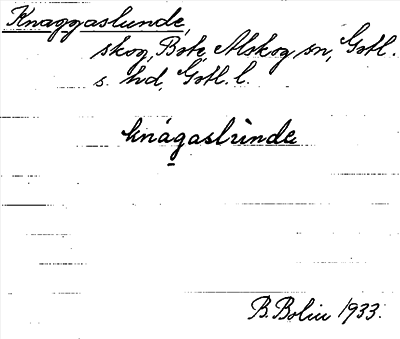 Knaggaslunde,
skog, Bote, Alskog sn, Gotl.
s. hd, Gotl. l.
knágaslùnde
B. Bolin 1933.